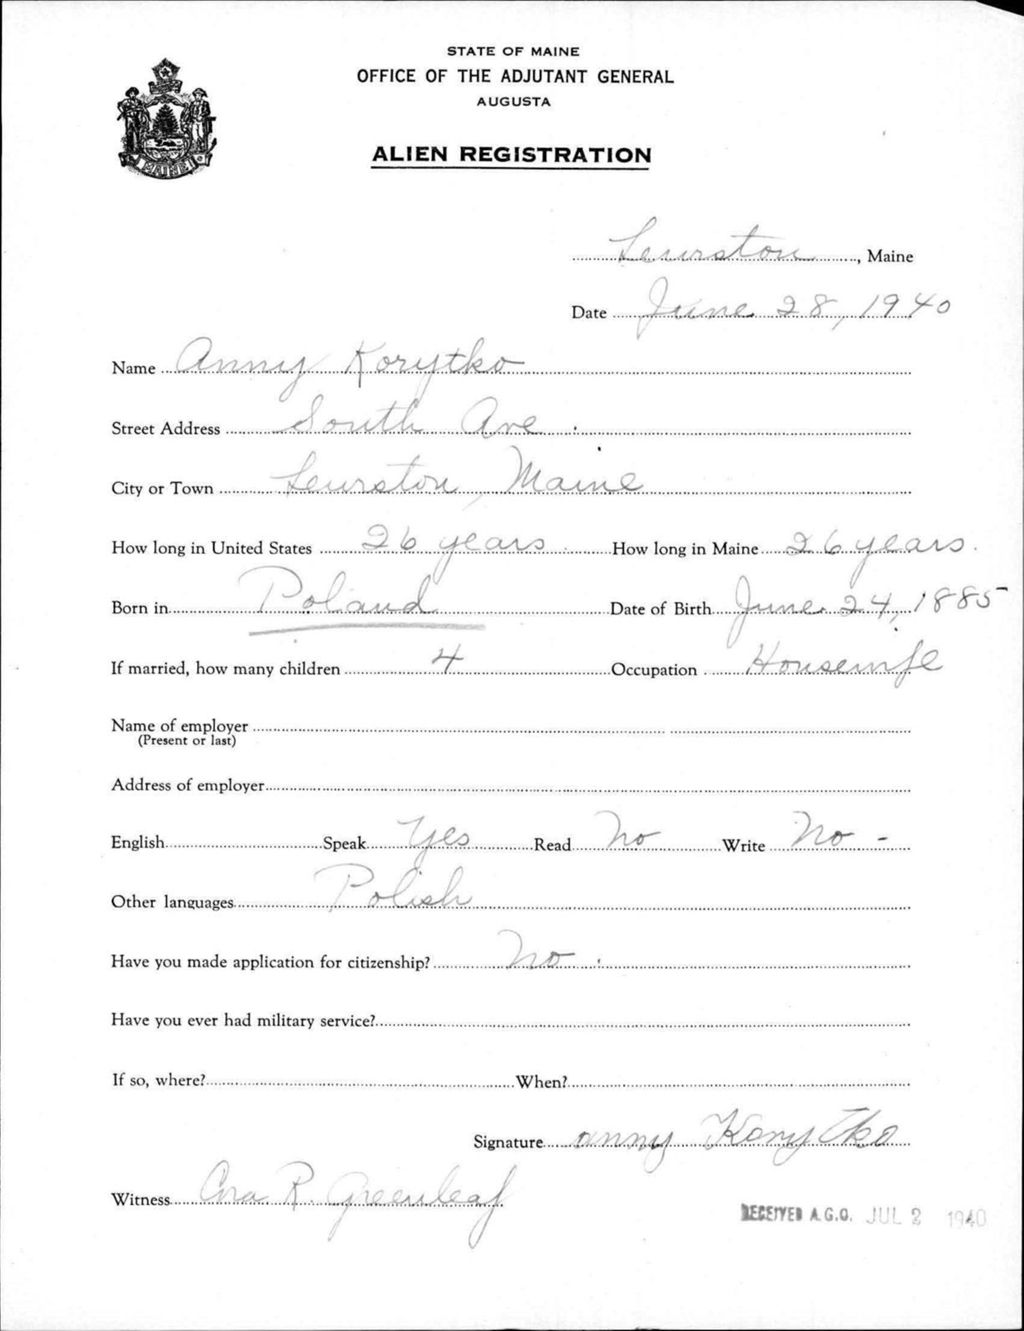 STATE OF MAINE
OFFICE OF THE ADJUTANT GENERAL
AUGUSTA
ALIEN REGISTRATION
MAINE
Lewiston, Maine
Date June 28, 1940
Name Anny Korytko
Street Address South Ave.
City or Town Lewiston, Maine
How long in United States 26 years How long in Maine 26 years.
Born in Poland Date of Birth June 24, 1885
If married, how many children 4 Occupation Housewife
Name of employer
(Present or last)
Address of employer
English Speak Yes Read No Write No -
Other languages Polish
Have you made application for citizenship? No.
Have you ever had military service?
If so, where? When?
Signature anny Korytko
Witness R. Greenleaf
RECEIVED A.G.O. JUL 2 1940